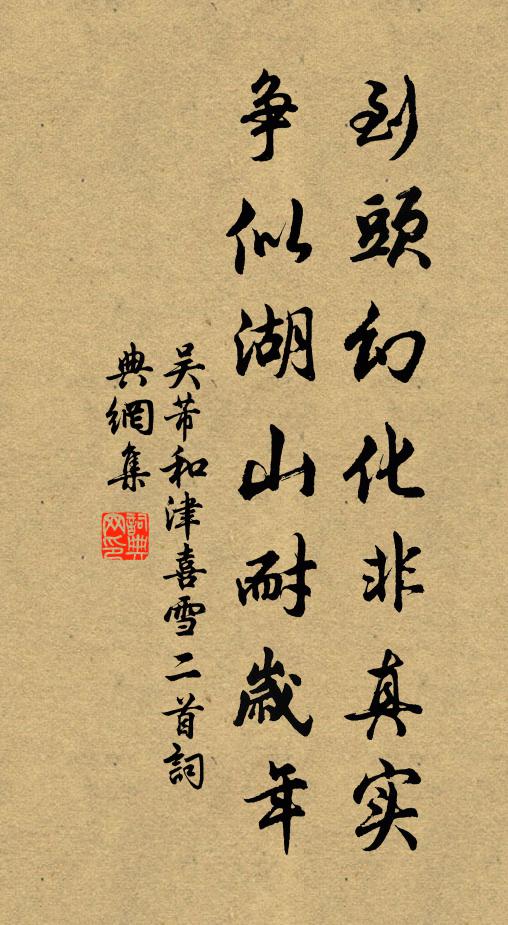 到頭幻化非真实
争似湖山耐歲年
吴芾和津喜雪二首詞
典網集
詞典网印